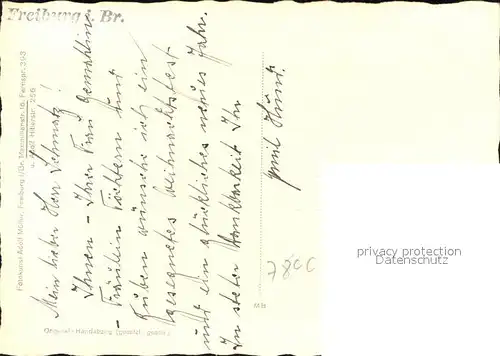 Freiburg i. Br.
Fotokunst Adolf Müller, Freiburg i/Br. Maximilianstr. 18, Fernspr. 393
u. Adolf Hitlerstr. 256
Mein lieber Herr Schmatz!
Ihnen - Ihrer Frau Gemahlin
- Fräulein Töchtern und
Buben wünsche ich ein
gesegnetes Weihnachtsfest
und ein glückliches neues Jahr.
In steter Dankbarkeit Ihr
Emil
780C
M 18
Original-Handabzug (gesetzl. gesch.)
privacy protection
Datenschutz